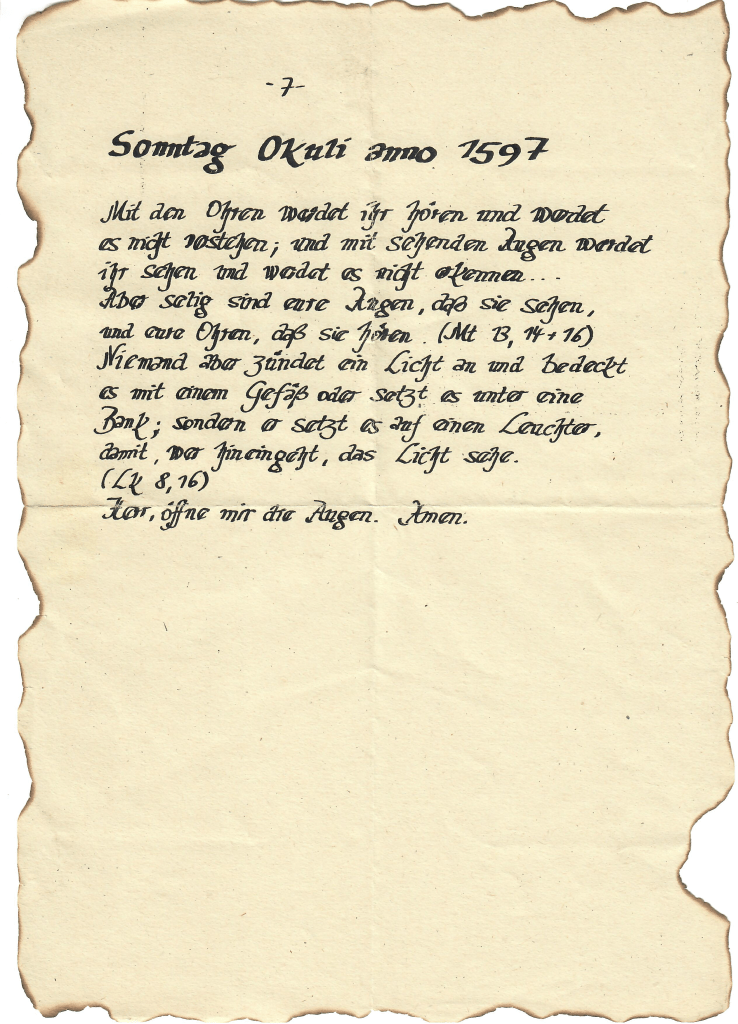 - 7 -
Sonntag Okuli anno 1597
Mit den Ohren werdet ihr hören und werdet
es nicht verstehen; und mit sehenden Augen werdet
ihr sehen und werdet es nicht erkennen...
Aber selig sind eure Augen, daß sie sehen,
und eure Ohren, daß sie hören. (Mt 13, 14+16)
Niemand aber zündet ein Licht an und bedeckt
es mit einem Gefäß oder setzt es unter eine
Bank; sondern er setzt es auf einen Leuchter,
damit, wer hineingeht, das Licht sehe.
(Lk 8, 16)
Herr, öffne mir die Augen. Amen.